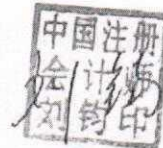 中国注册
会计师
刘钧印